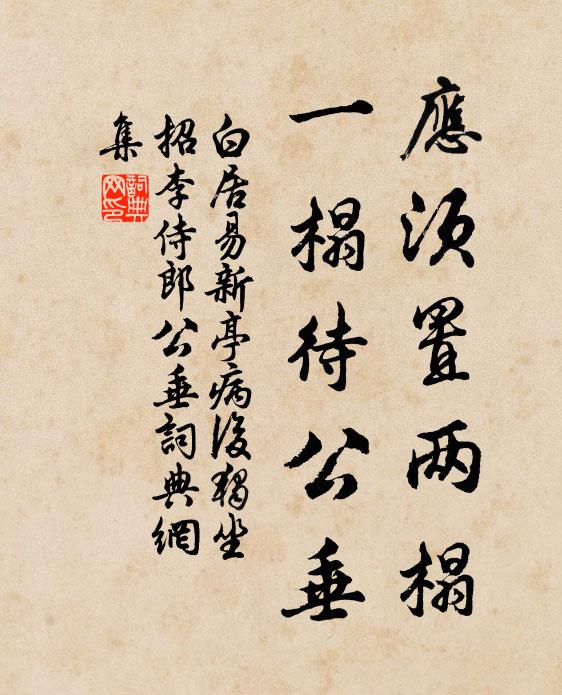 應須置两榻
一榻待公垂
白居易新亭病後獨坐
招李侍郎公垂詞典網
集
詞典
网印